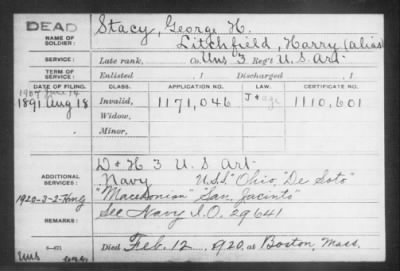 DEAD
NAME OF SOLDIER: Stacy, George H.
Litchfield, Harry (alias)
SERVICE: Late rank, Co. Uns 3 Reg't U.S. Art.
TERM OF SERVICE: Enlisted , 1 Discharged , 1
DATE OF FILING. CLASS. APPLICATION NO. LAW. CERTIFICATE NO.
1891 Aug 18 Invalid, 1171,046 1110,601
Widow,
Minor,
ADDITIONAL SERVICES: D & H 3 U.S. Art.
Navy U.S.S. "Ohio," "De Soto"
"Macedonian" "San Jacinto"
See Navy I.O. 29641
REMARKS:
Died Feb. 12 1920, at Boston, Mass.